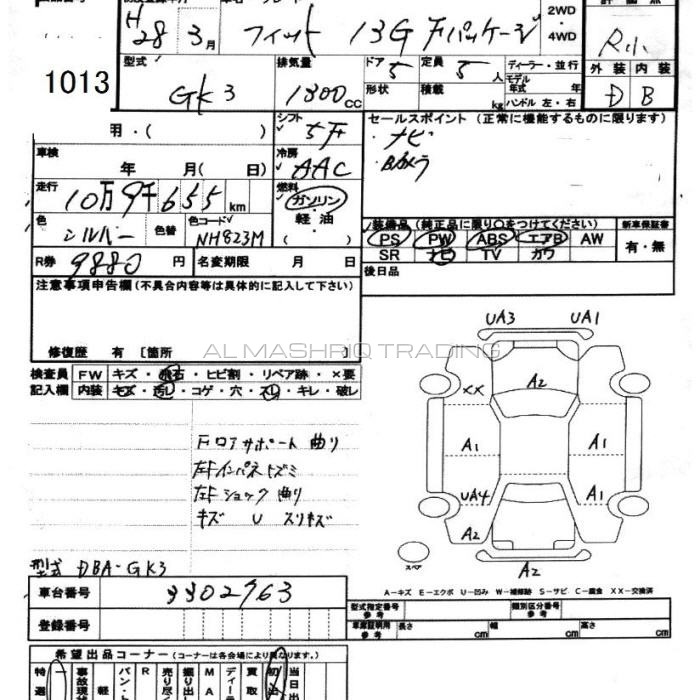 H 28 3月 フィット 13G Fパッケージ 2WD・4WD R小
1013
型式 GK3 排気量 1300cc ドア 5 形状 定員 5人 積載 kg ディーラー・並行 モデル年式 年 ハンドル 左・右 外装 内装 D B
用・( )
シフト 5F
セールスポイント (正常に機能するものに限ります)
ナビ
Bカメラ
車検 年 月( 日)
冷房 AAC
走行 10万9千655km
燃料 ガソリン・軽油・( )
色 シルバー 色替 色コード NH823M
装備品 (純正品に限り○をつけてください) 新車保証書
PS PW ABS エアB AW 有・無
SR ナビ TV カワ
R券 9880円 名変期限 月 日
後日品
注意事項申告欄(不具合内容等は具体的に記入して下さい)
修復歴 有[箇所 ]
AL MASHRIQ TRADING
検査員記入欄 FW キズ・飛石・ヒビ割・リペア跡・×要
内装 キズ・汚れ・コゲ・穴・スレ・キレ・破レ
Fロアサポート 曲り
左Fインパネ キズミ
左Fショック 曲り
キズ U スリキズ
UA3 UA1
A2
XX
A1 A1
UA4 A1
A2
A2
スペア
A−キズ E−エクボ U−凹み W−補修跡 S−サビ C−腐食 XX−交換済
型式 DBA-GK3
車台番号 3302963
登録番号
型式指定番号 参考 類別区分番号 参考
車庫証明用 参考 長さ cm 幅 cm 高さ cm
希望出品コーナー(コーナーは各会場により異なります。)